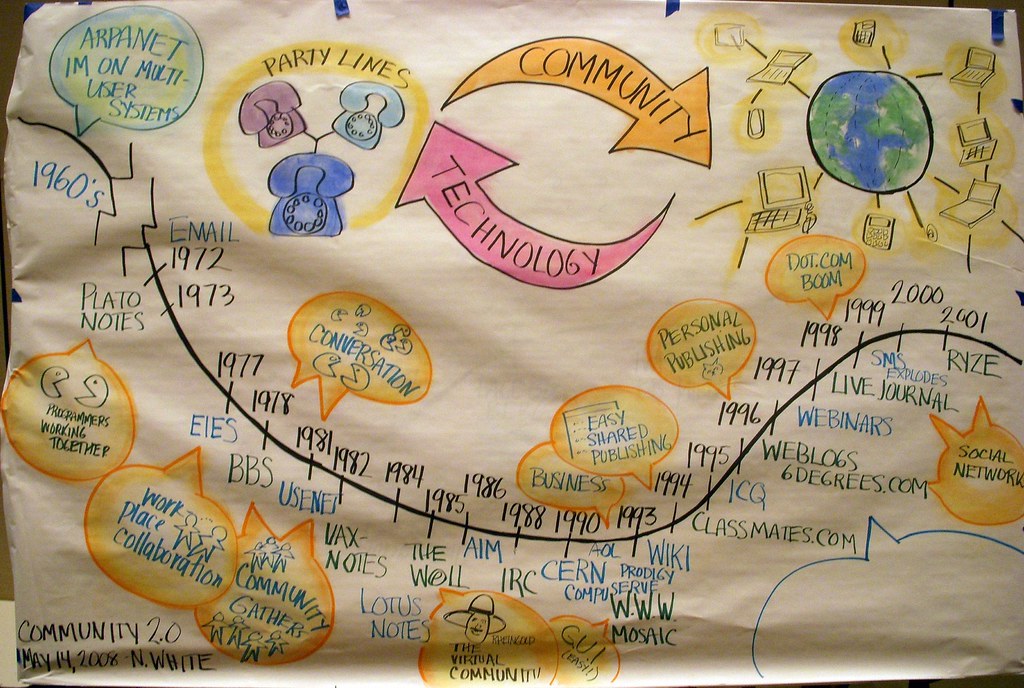 ARPANET
IM ON MULTI-
USER
SYSTEMS
PARTY LINES
COMMUNITY
TECHNOLOGY
1960's
EMAIL
1972
1973
PLATO
NOTES
1977
EIES
1978
BBS
1981
USENET
1982
VAX-
NOTES
1984
1985
THE
W@LL
LOTUS
NOTES
1986
AIM
1988
IRC
1990
CERN
AOL
PRODIGY
COMPUSERVE
1993
WIKI
W.W.W.
MOSAIC
1994
CLASSMATES.COM
1995
ICQ
1996
WEBLOGS
6DEGREES.COM
1997
WEBINARS
1998
LIVE JOURNAL
1999
SMS
EXPLODES
2000
2001
RYZE
PROGRAMMERS
WORKING
TOGETHER
CONVERSATION
WORK
PLACE
COLLABORATION
COMMUNITY
GATHERS
THE
VIRTUAL
COMMUNITY
RHEINGOLD
GUI
(EASY!)
BUSINESS
EASY
SHARED
PUBLISHING
PERSONAL
PUBLISHING
DOT.COM
BOOM
SOCIAL
NETWORK
COMMUNITY 2.0
MAY 14, 2008 - N. WHITE